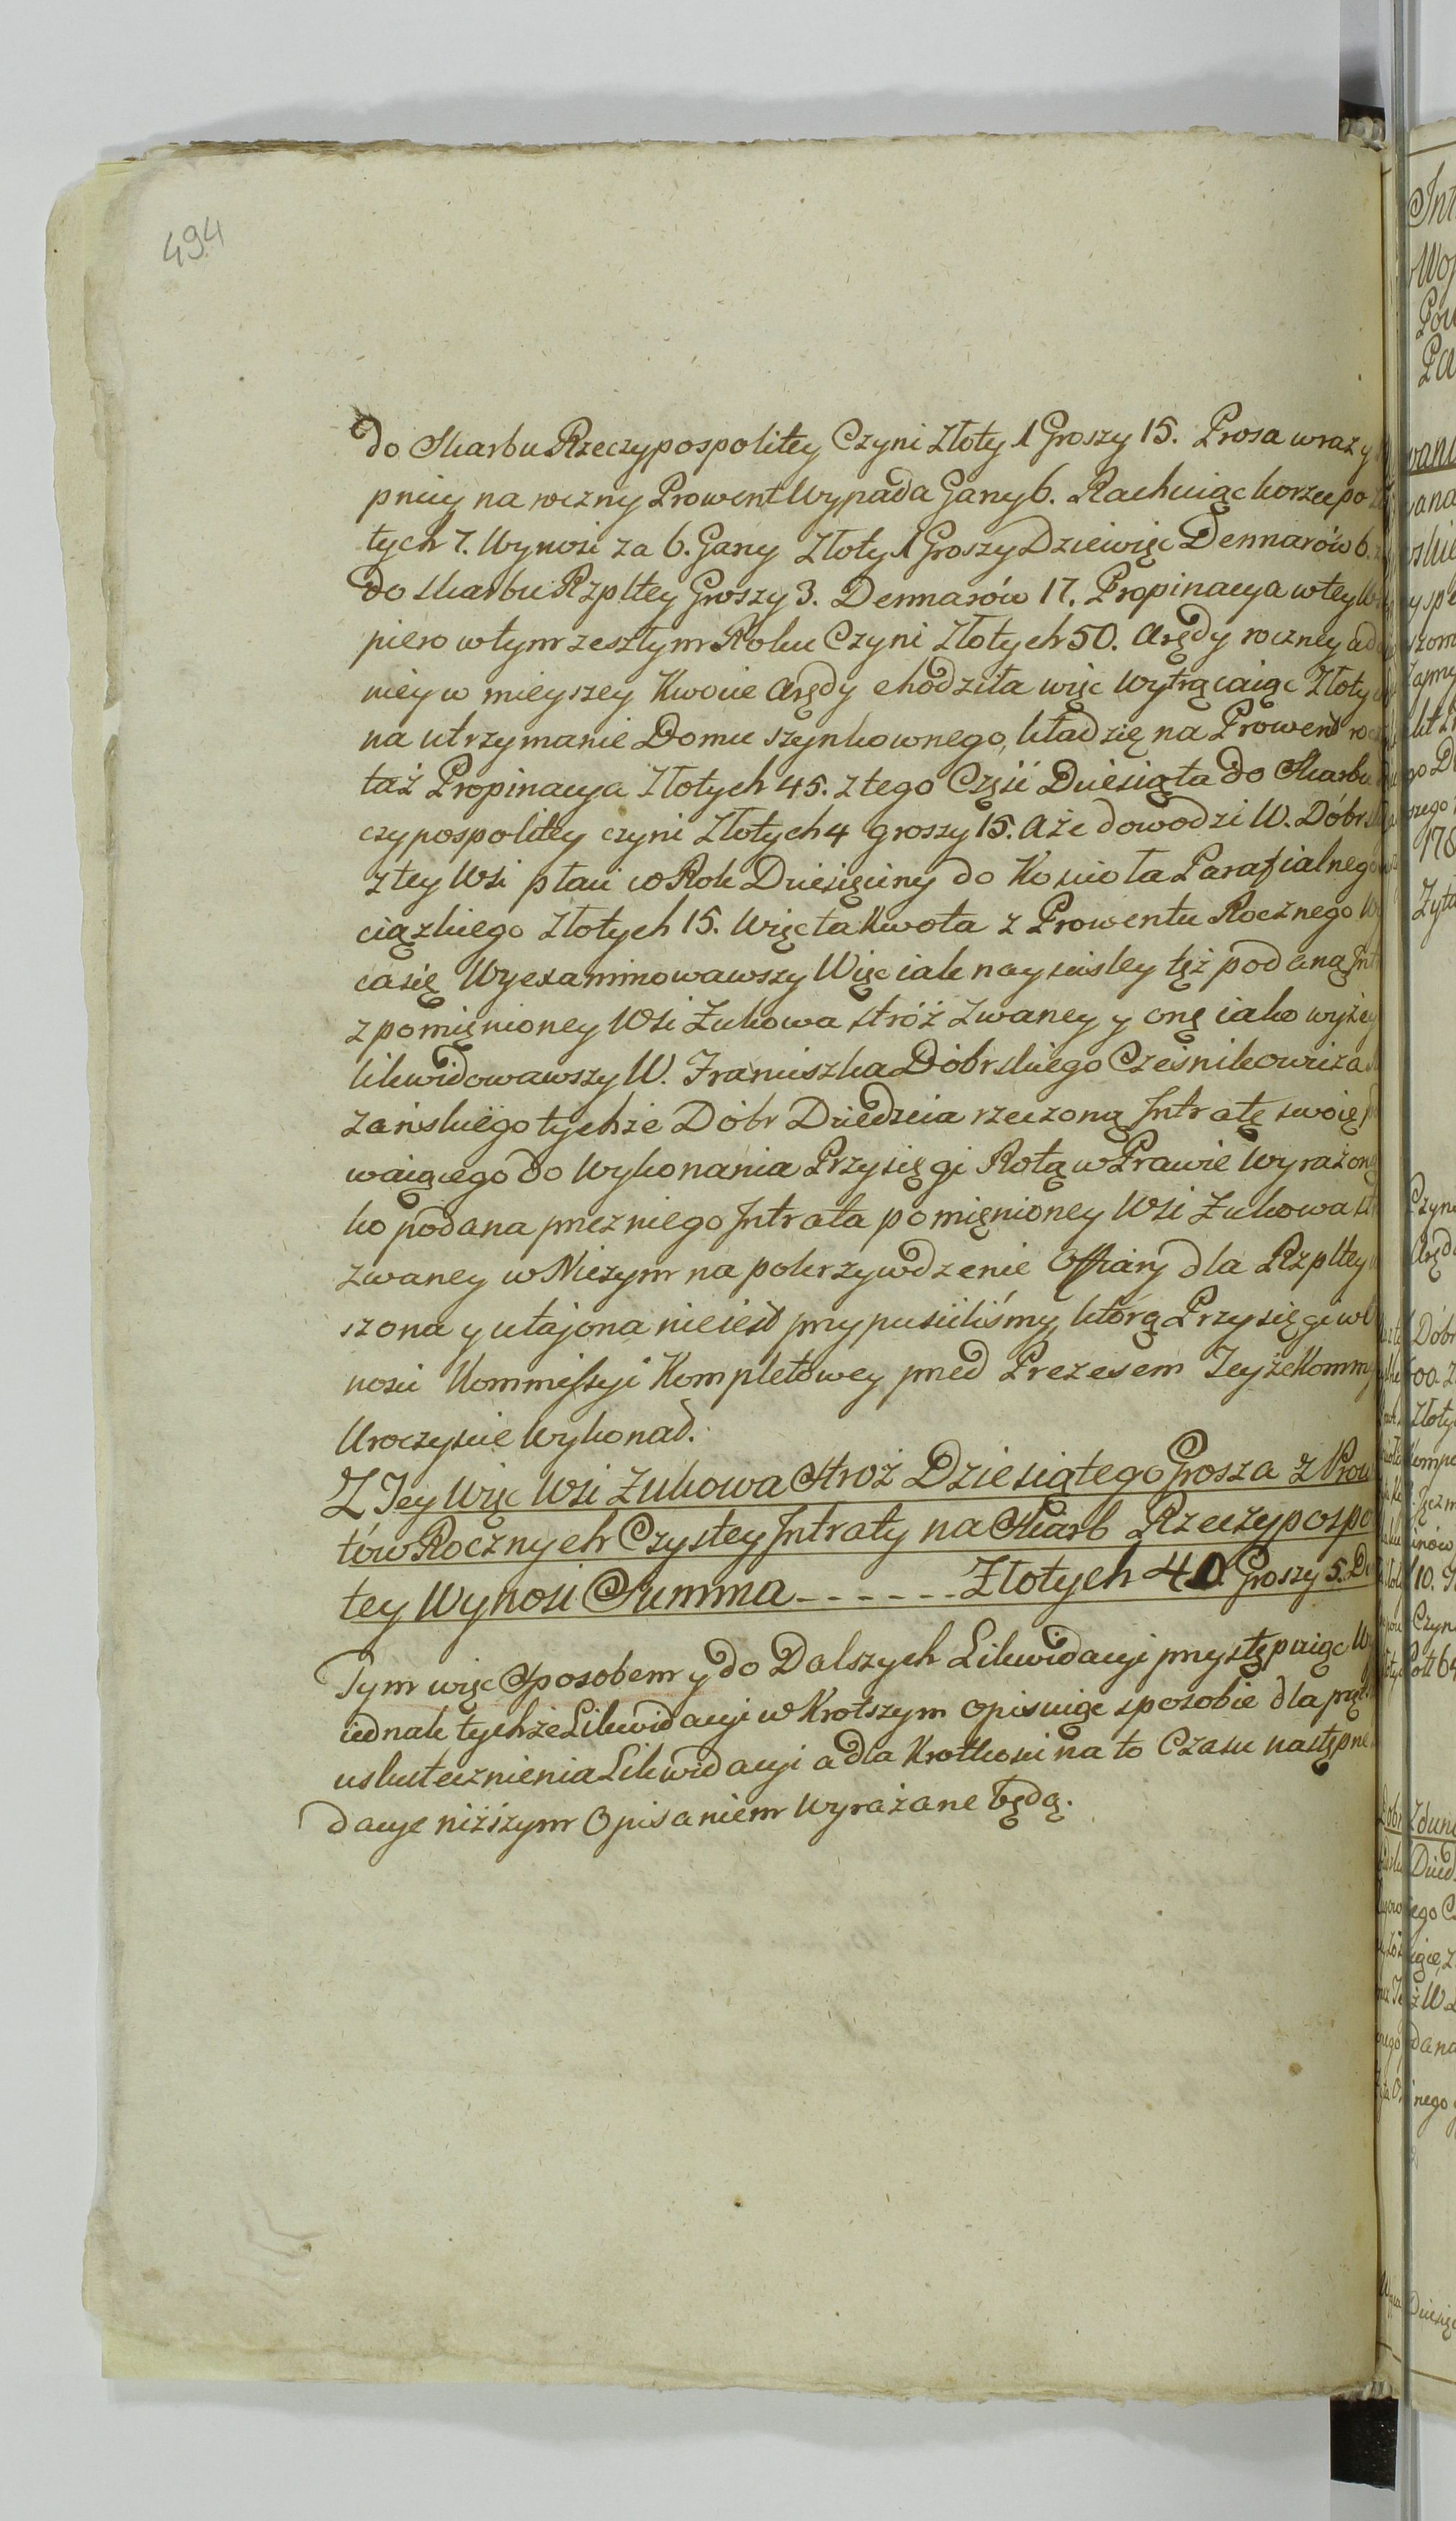 494
do Skarbu Rzeczypospolitey Czyni Złoty 1 Groszy 15. Prosa wraz y
pnicy na roczny Prowent Wypada Gany 6. Rachuiąc korzec po
tych 7. Wynosi za 6. Gany Złoty 1 Groszy Dziewięć Dennarów 6.
do Skarbu Rzpltey Groszy 3. Dennarów 17. Propinacya w tey
piero w tym zeszłym Roku Czyni Złotych 50. Arędy roczney ad
niey w mieyszey Kwocie Arędy chodziła więc Wytrącaiąc Złoty
na utrzymanie Domu szynkownego, kładzię na Prowent
taż Propinacya Złotych 45. z tego Część Dziesiąta do Skarbu
czypospolitey czyni Złotych 4 groszy 15. Aże dowodzi W. Dobr
z tey Wsi płaci w Rok Dziesięciny do Kościoła Parafialnego
ciązkiego Złotych 15. Więc ta Kwota z Prowentu Rocznego
ca się Wyexaminowawszy Więc iak nayściśley tęż podaną
z pomięnioney Wsi Żukowa stróż zwaney y onę iako wyżey
likwidowawszy W. Franciszka Dobrskiego Cześnikowicza
zańskiego tychże Dóbr Dziedzica rzeczoną Intratę swoię
waiącego do Wykonania Przysięgi Rotą w Prawie Wyrażoną
ko podana przez niego Intrata pomięnioney Wsi Żukowa
zwaney w Niczym na pokrzywdzenie Offiary dla Rzpltey
szona y utajona nieiest przypuściliśmy, którą Przysięgę w
ności Kommissyi Kompletowey przed Prezesem Teyże Kommy
Uroczyscie Wykonał.
Z Tey Więc Wsi Żukowa Stroż Dziesiątego Grosza z Prow
tów Rocznych Czystey Intraty na Skarb Rzeczypospo
tey Wynosi Summa - - - - - - Złotych 40. Groszy 5. De
Tym więc Sposobem y do Dalszych Likwidacyi przystępuiąc
iednak tychże Likwidacyi w Krotszym opisuiąc sposobie dla
uskutecznienia Likwidacyi a dla Krotkości na to Czasu następne
dacye niższym Opisaniem Wyrażane będą.